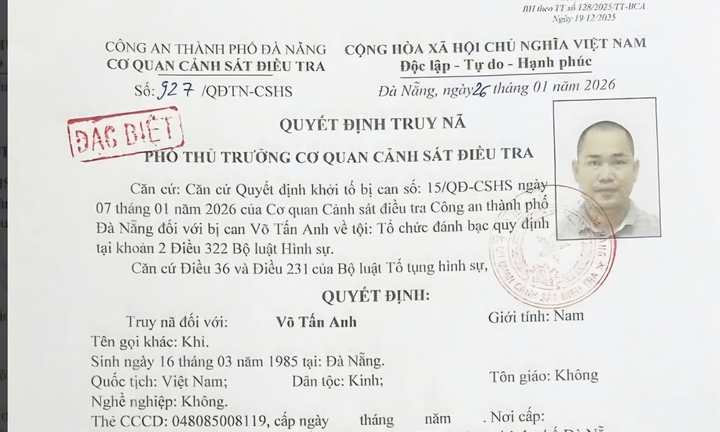 BH theo TT số 128/2025/TT-BCA
Ngày 19/12/2025
CÔNG AN THÀNH PHỐ ĐÀ NẴNG
CƠ QUAN CẢNH SÁT ĐIỀU TRA
Số: 927 /QĐTN-CSHS
CỘNG HÒA XÃ HỘI CHỦ NGHĨA VIỆT NAM
Độc lập - Tự do - Hạnh phúc
Đà Nẵng, ngày 26 tháng 01 năm 2026
ĐẶC BIỆT
QUYẾT ĐỊNH TRUY NÃ
PHÓ THỦ TRƯỞNG CƠ QUAN CẢNH SÁT ĐIỀU TRA
Căn cứ: Căn cứ Quyết định khởi tố bị can số: 15/QĐ-CSHS ngày
07 tháng 01 năm 2026 của Cơ quan Cảnh sát điều tra Công an thành phố
Đà Nẵng đối với bị can Võ Tấn Anh về tội: Tổ chức đánh bạc quy định
tại khoản 2 Điều 322 Bộ luật Hình sự.
Căn cứ Điều 36 và Điều 231 của Bộ luật Tố tụng hình sự,
QUYẾT ĐỊNH:
Truy nã đối với: Võ Tấn Anh Giới tính: Nam
Tên gọi khác: Khỉ.
Sinh ngày 16 tháng 03 năm 1985 tại: Đà Nẵng.
Quốc tịch: Việt Nam; Dân tộc: Kinh; Tôn giáo: Không
Nghề nghiệp: Không.
Thẻ CCCD: 048085008119, cấp ngày tháng năm . Nơi cấp: